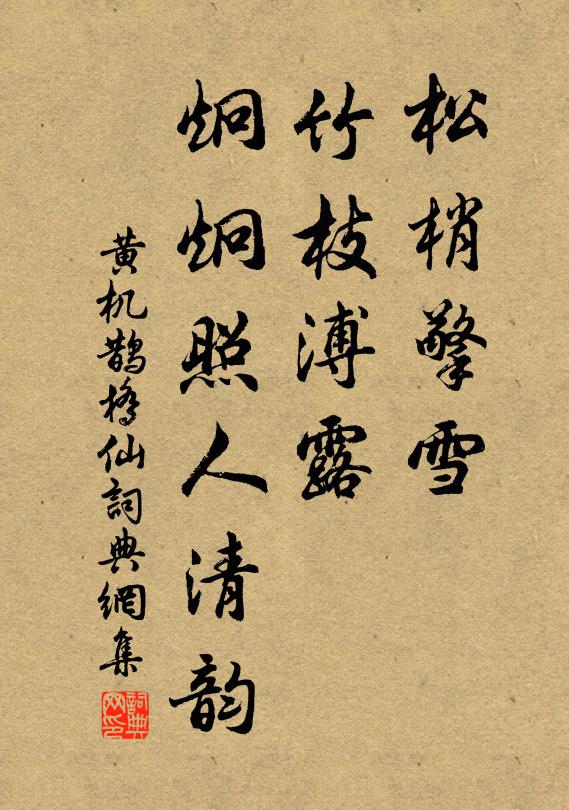 松梢擎雪
竹枝溥露
炯炯照人清韵
黄机鹊橋仙詞典網集
詞典
网印